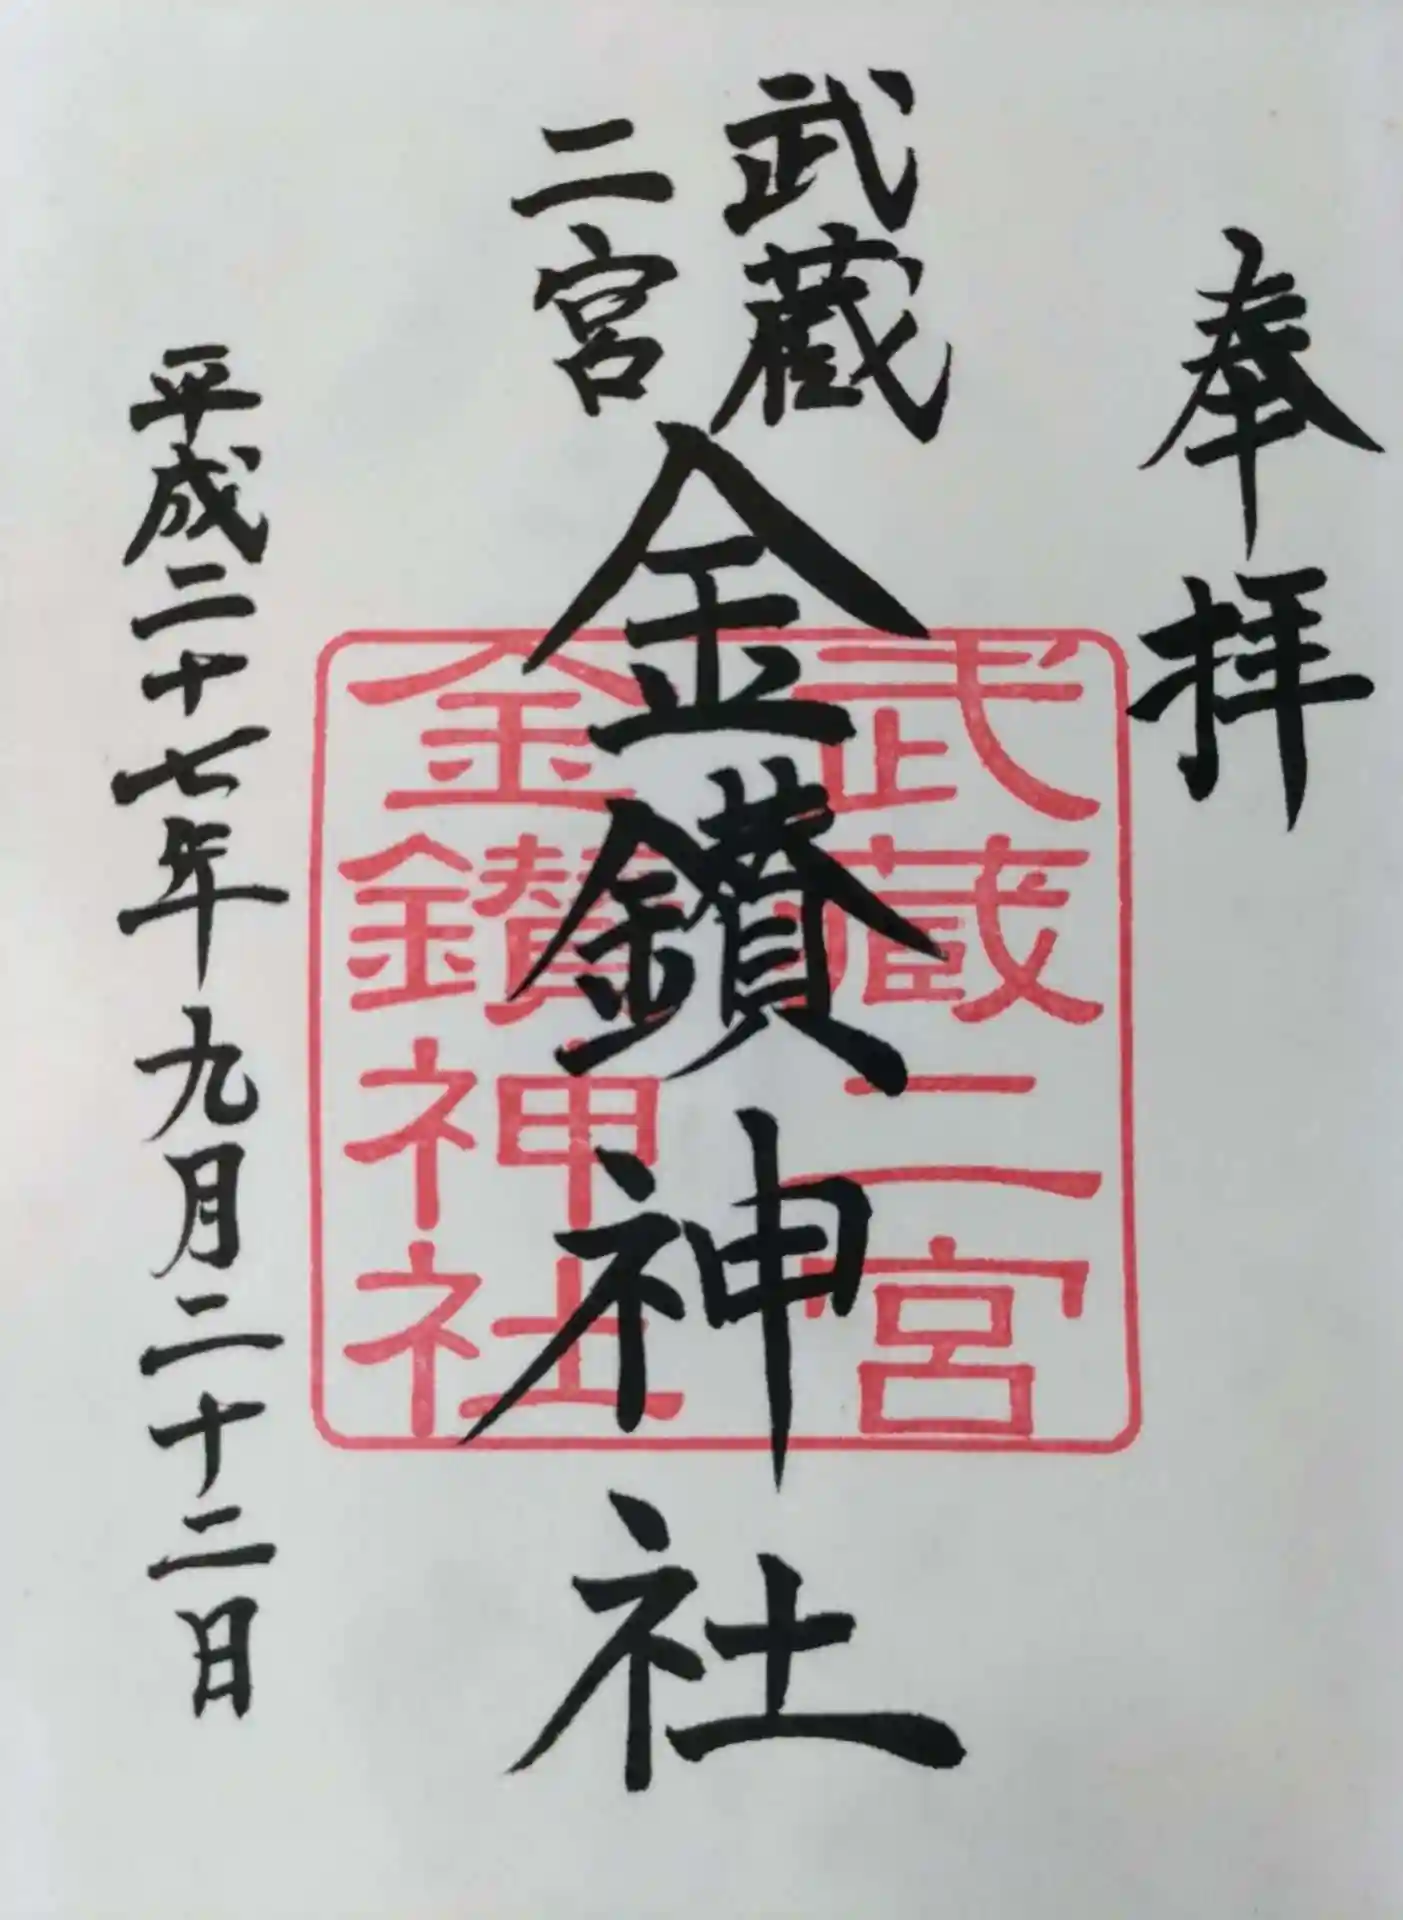 奉拝
武蔵
二宮
金鑚神社
武蔵二宮
金鑚神社
平成二十七年九月二十二日